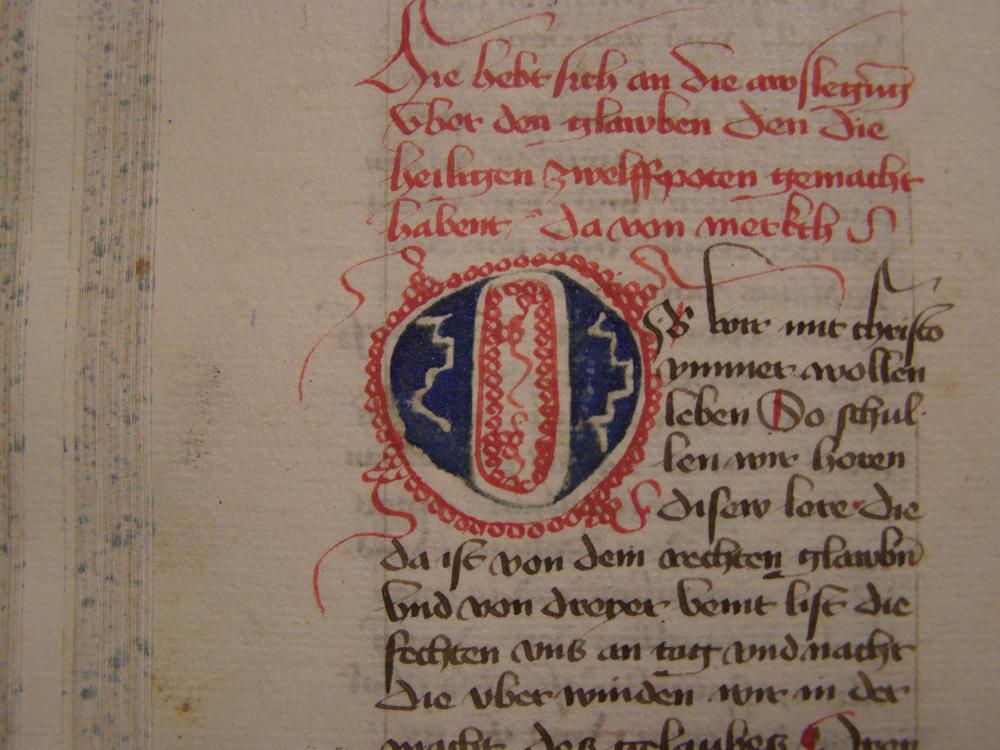 Hie hebt sich an die awslegūg
vber den glawben den die
heiligen zwelffpoten gemacht
habent da von merkch
O
S wir mit christo
ymmer wollen
leben So schul
len wir horen
disew lere die
da ist von dem rechten glawbn̄
vnd von dreyer veint list die
fechten vns an tag vnd nacht
die vber winden wir in der
macht des glaubes